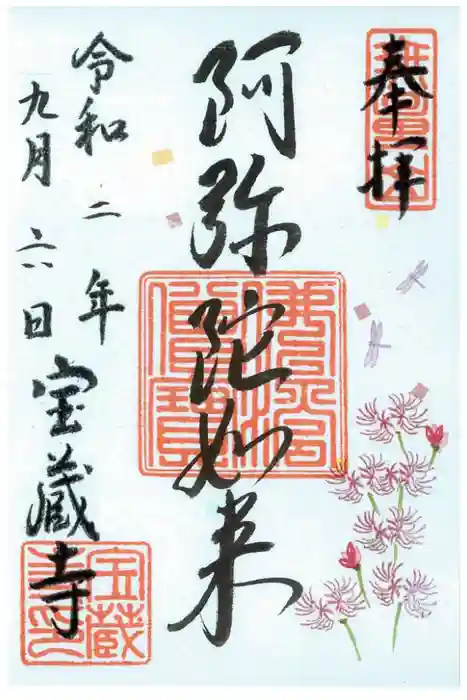 奉拝
阿弥陀如来
令和二年
九月六日
宝蔵寺
宝蔵
寺印